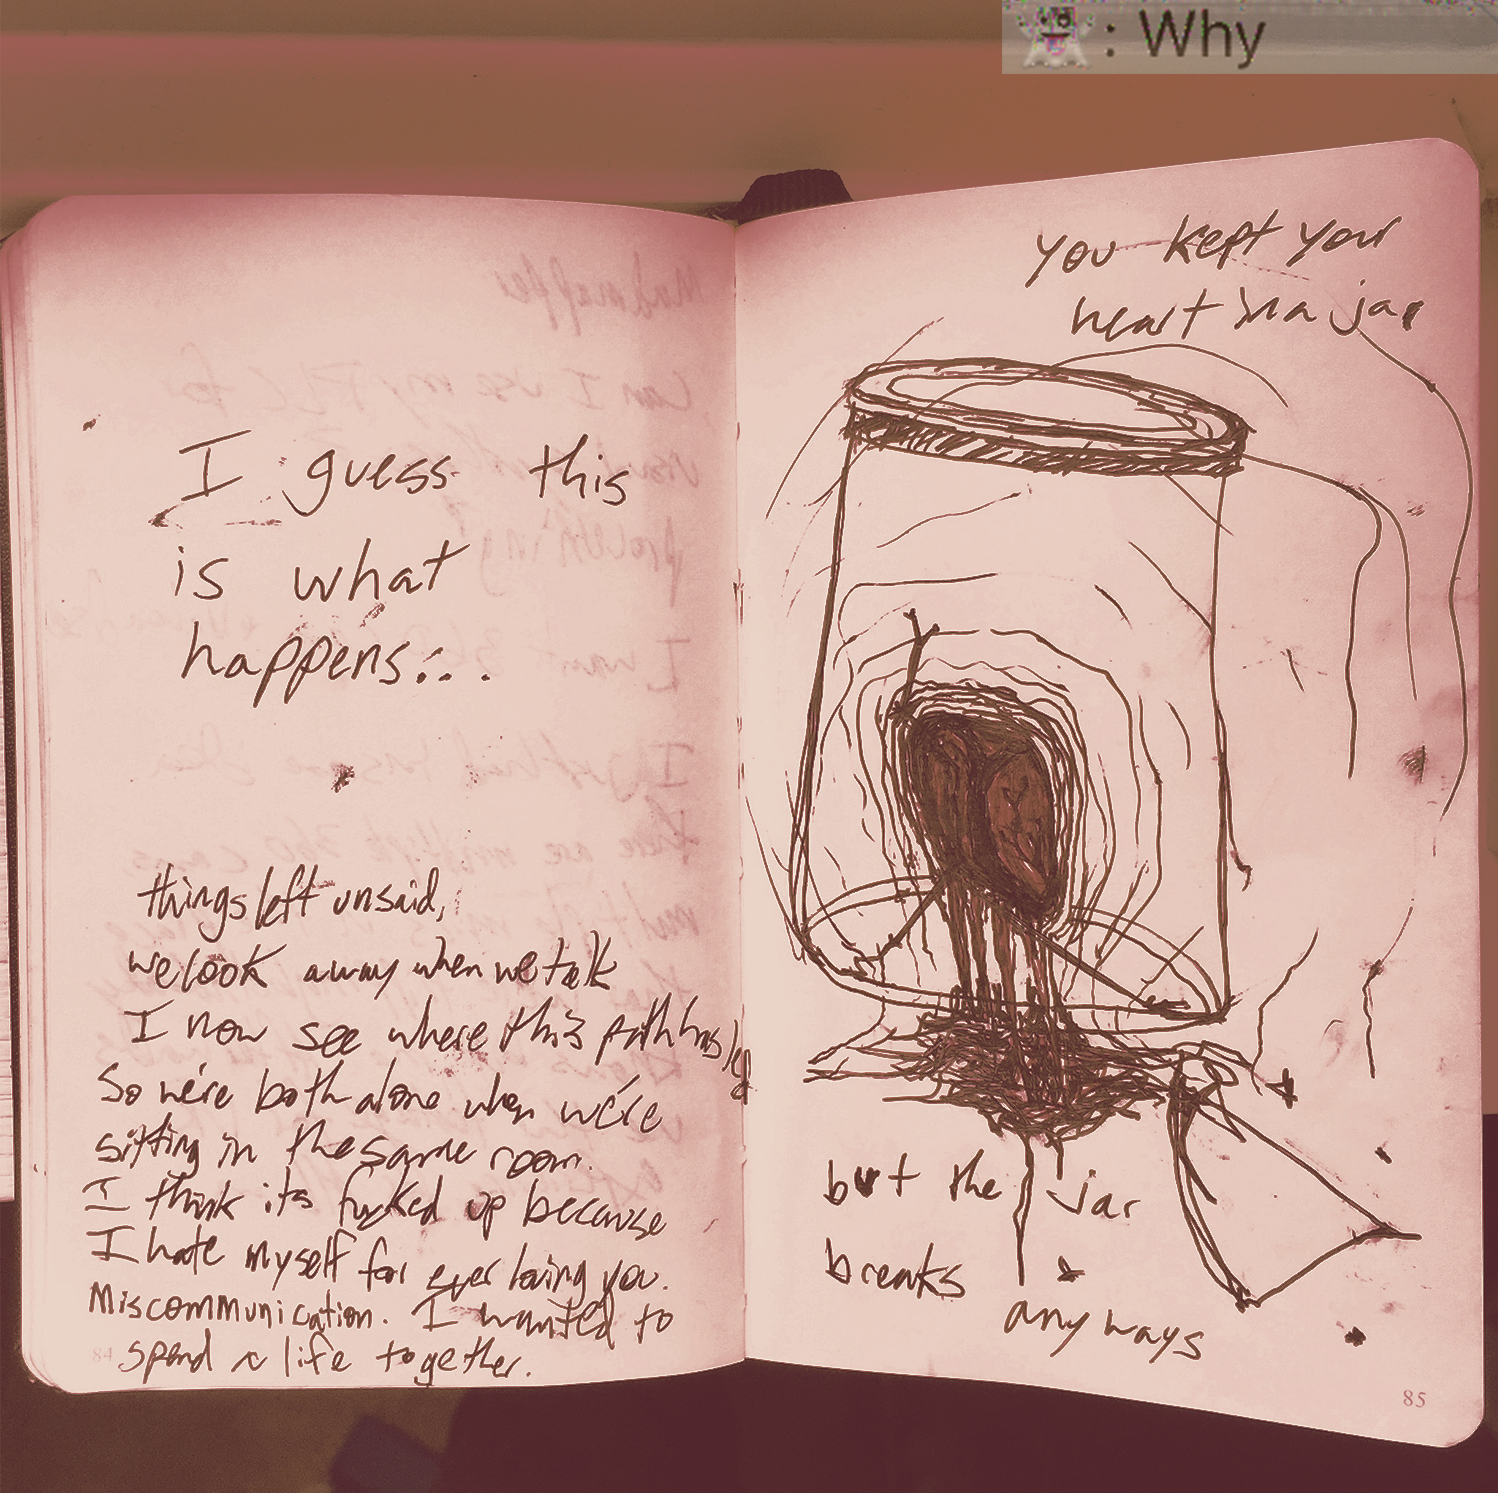 : Why
I guess this
is what
happens...
things left unsaid,
we look away when we talk
I now see where this path has led
So we're both alone when we're
sitting in the same room.
I think its fucked up because
I hate myself for ever loving you.
Miscommunication. I wanted to
spend a life together.
84
you kept your
heart in a jar
but the jar
breaks
any ways
85